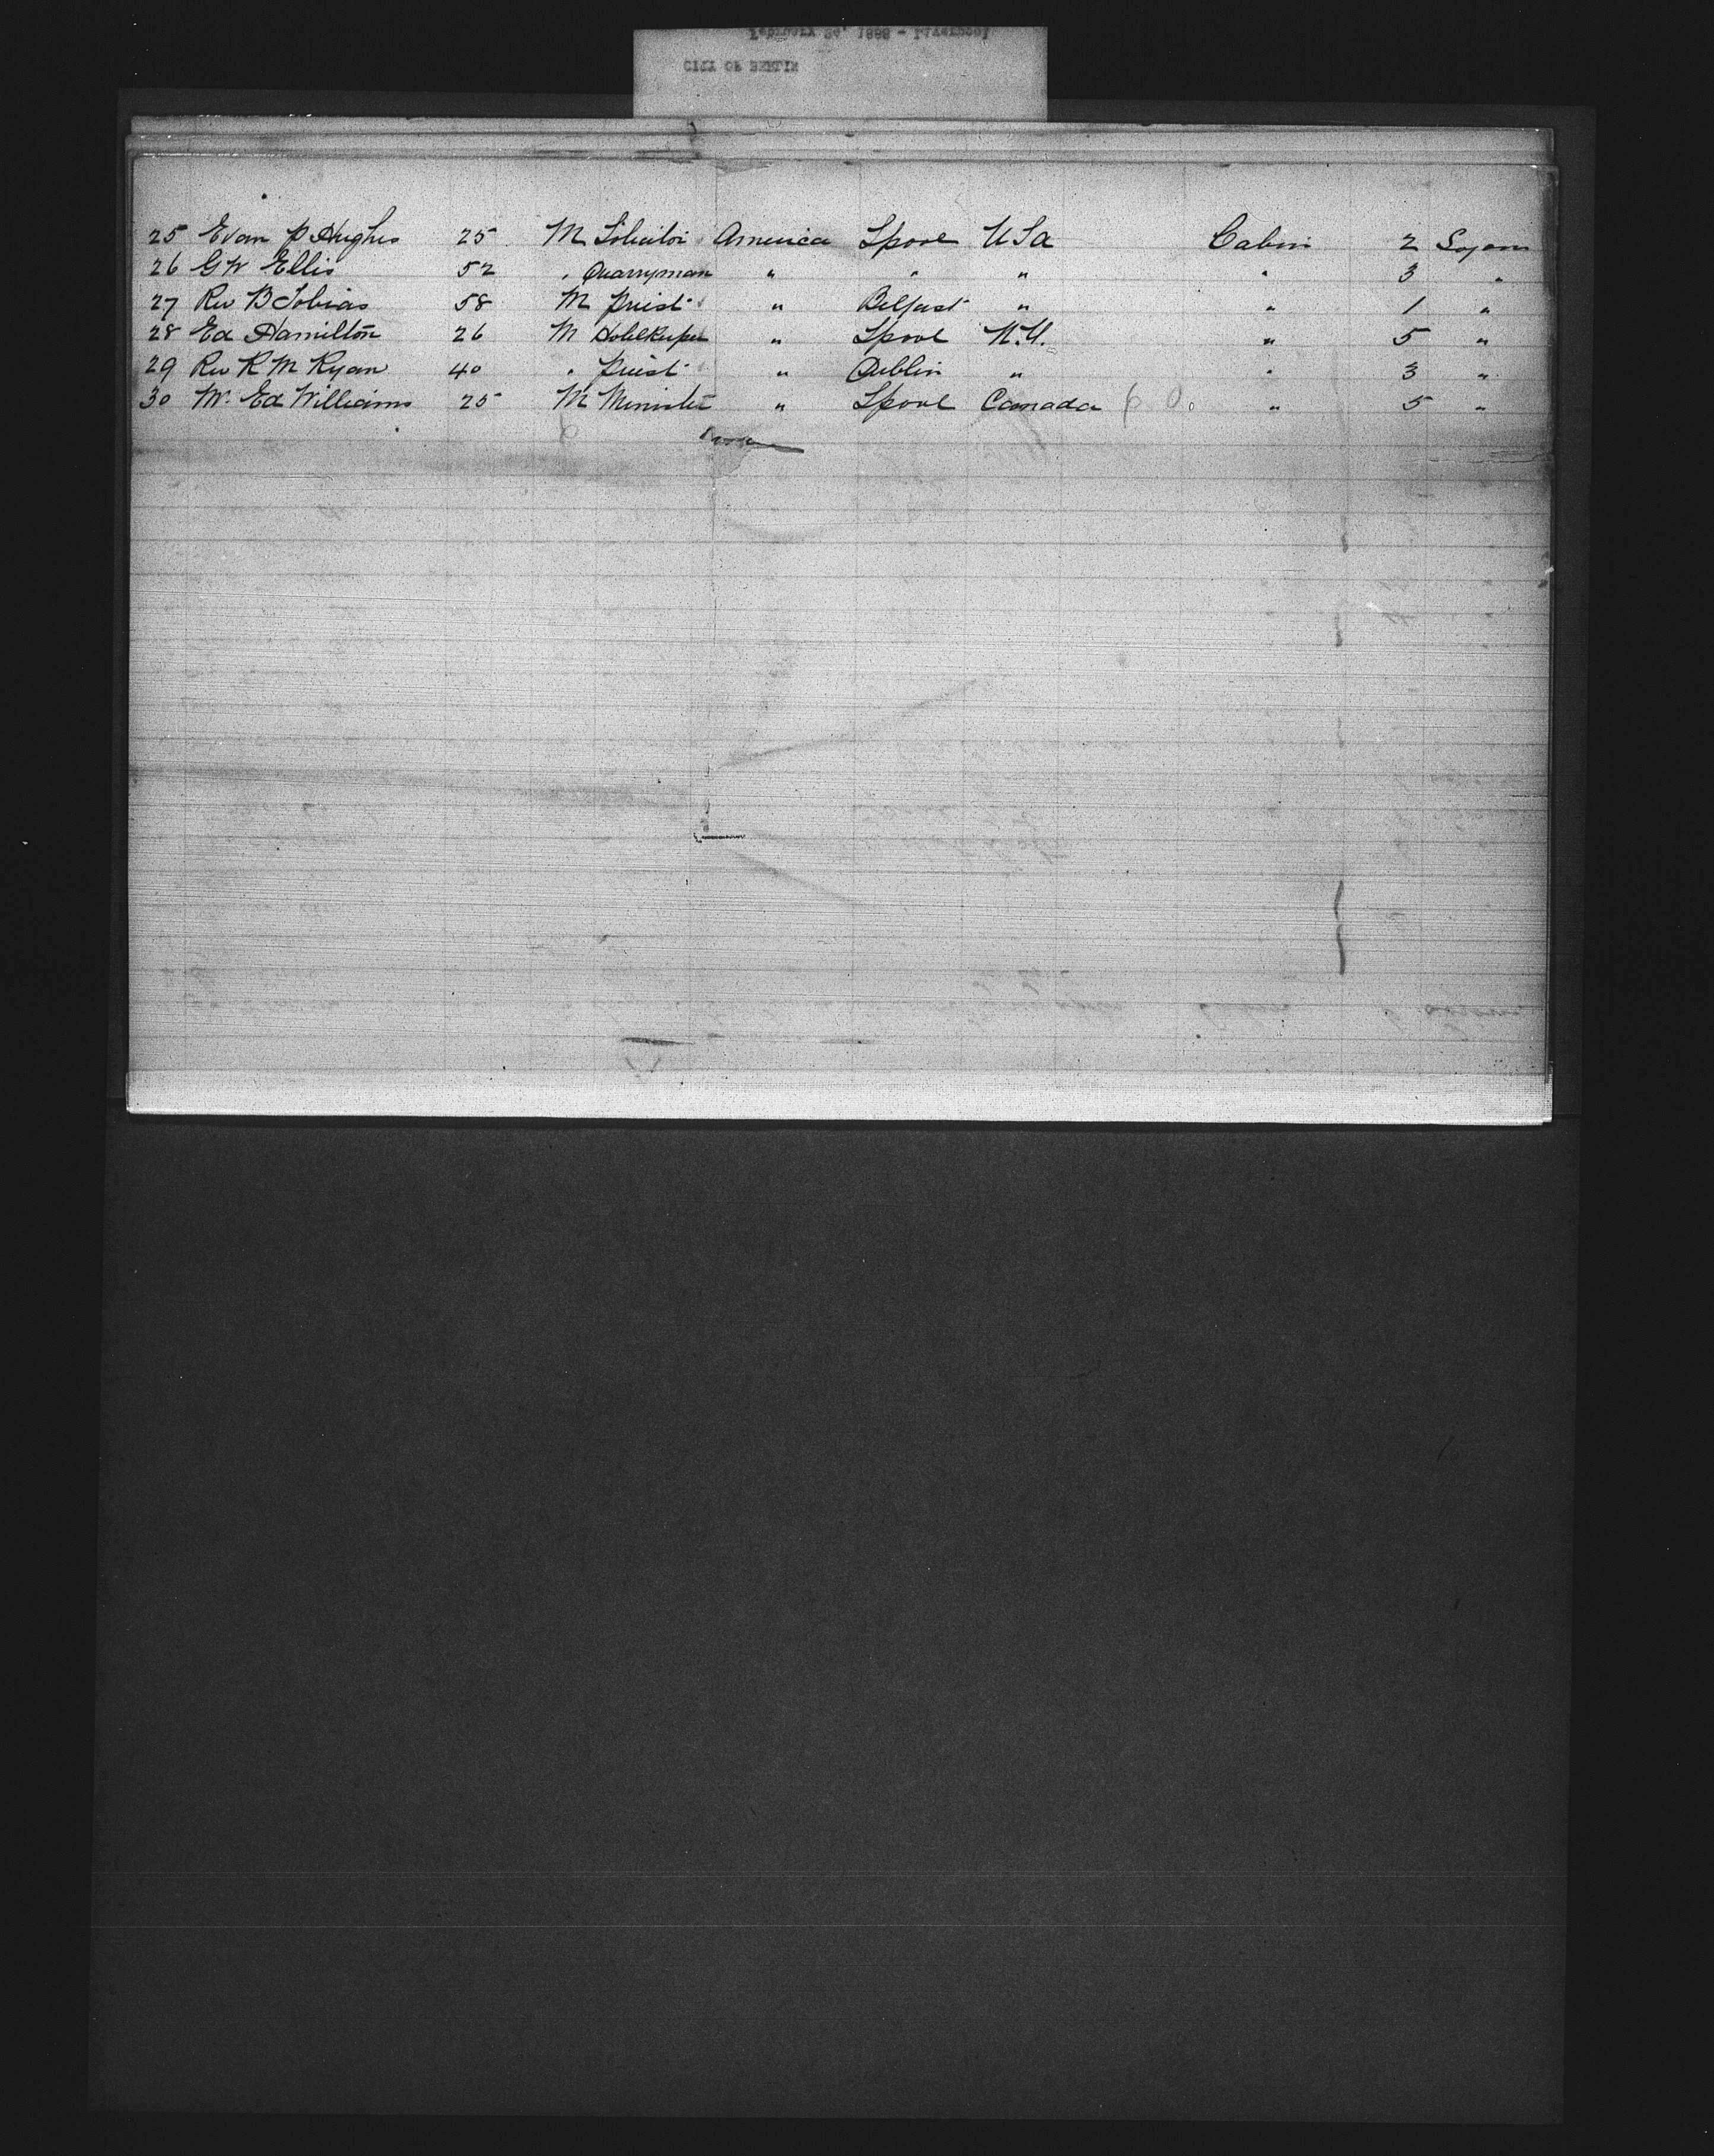 CITY OF BERLIN
25 Evan P Hughes 25 M Solicitor America Lpool USA Cabin 2 Sojourn
26 G W Ellis 52 " Quarryman " " " " 3 "
27 Rev B Tobias 58 M Priest " Belfast " " 1 "
28 Ed Hamilton 26 M Hotelkeeper " Lpool N.Y. " 5 "
29 Rev R M Ryan 40 " Priest " Dublin " " 3 "
30 Mr Ed Williams 25 M Minister " Lpool Canada " 5 "